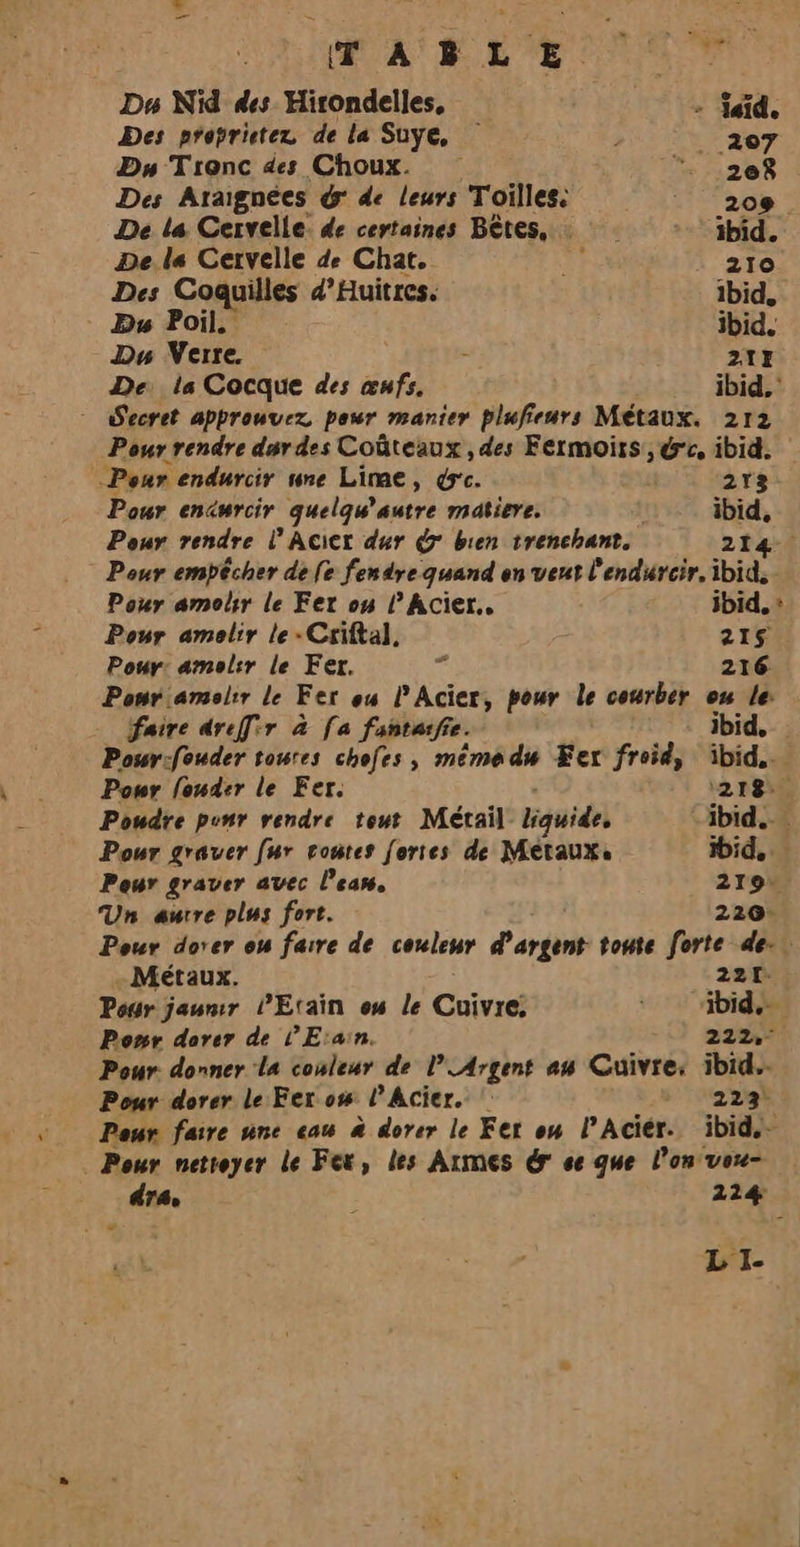 TABLE
Du Nid des Hirondelles, ibid.
Des proprietez de la Suye, 207
Du Tronc des Choux. 208
Des Araignées & de leurs Toilles. 209
De la Cervelle de certaines Bêtes, ibid.
De la Cervelle de Chat. 210
Des Coquilles d'Huitres. ibid.
Du Poil. ibid.
Du Verre. 211
De la Cocque des œufs. ibid.
Secret approuvez, pour manier plusieurs Métaux. 212
Pour rendre dur des Coûteaux, des Fermoirs, &c, ibid.
Pour endurcir une Lime, &c. 213
Pour endurcir quelqu'autre matiere. ibid.
Pour rendre l'Acier dur & bien trenchant. 214
Pour empêcher de se fendre quand on veut l'endurcir, ibid.
Pour amolir le Fer ou l'Acier. ibid.
Pour amolir le Cristal. 215
Pour amolir le Fer. 216
Pour amolir le Fer ou l'Acier, pour le courber ou le
faire dresser à sa fantaisie. ibid.
Pour souder toutes choses, même du Fer froid, ibid.
Pour souder le Fer. 218
Poudre pour rendre tout Métail liquide. ibid.
Pour graver sur toutes sortes de Métaux. ibid.
Pour graver avec l'eau. 219
Un autre plus fort. 220
Pour dorer ou faire de couleur d'argent toute sorte de
Métaux. 221
Pour jaunir l'Etain ou le Cuivre. ibid.
Pour dorer de l'Etain. 222
Pour donner la couleur de l'Argent au Cuivre. ibid.
Pour dorer le Fer ou l'Acier. 223
Pour faire une eau à dorer le Fer ou l'Acier. ibid.
Pour nettoyer le Fer, les Armes & ce que l'on vou-
dra, 224
LI-